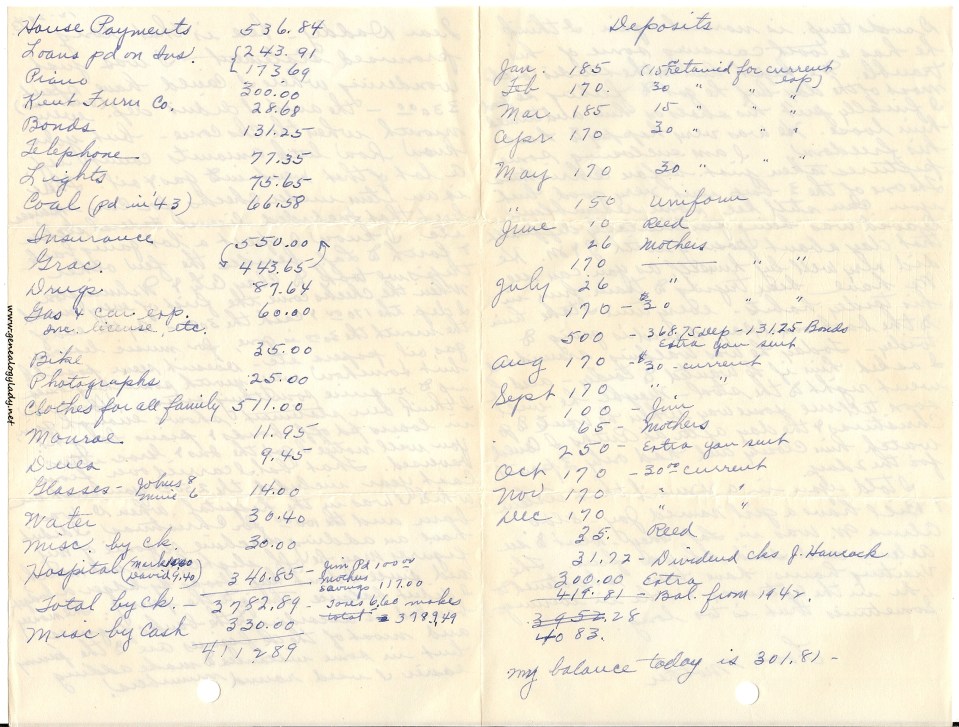 House Payments 536.84
Loans pd on Ins. { 243.91
173.69
Piano 300.00
Kent Furn Co. 28.68
Bonds 131.25
Telephone 77.35
Lights 75.65
Coal (pd in '43) 66.58
Insurance (550.00)
Groc. 443.65
Drugs 87.64
Gas & car exp. 60.00
inc. license, etc.
Bike 35.00
Photographs 25.00
Clothes for all family 511.00
Monroe 11.95
Dues 9.45
Glasses - Johns 8 14.00
mine 6
Water 30.40
Misc. by ck. 30.00
Hospital 340.85 - Jim Pd 100.00
David 9.40 mothers
savings 117.00
Total by ck. - 3782.89 - makes
total 3789.49
Misc by Cash 330.00
411289
Deposits
Jan. 185 (15 Retained for current
exp)
Feb 170. 30 " " "
Mar 185 15 " " "
Apr 170 30 " " "
May 170 30 " " "
" 150 Uniform
June 10 Reed
26 Mothers
170 " "
July 26 "
170 - $30 " "
500 - 368.75 dep - 131.25 Bonds
Extra you sent
Aug 170 - $30 - current
Sept 170 " "
100 - Jim
65 - Mothers
250 - Extra you sent
Oct 170 - 30 current
Nov 170 " "
Dec 170 " "
35. Reed
31.72 - Dividend cks J. Hancock
300.00 Extra
419.81 - Bal. from 1942.
3952.28
4083.
My balance today is 301.81 -
www.genealogylady.net